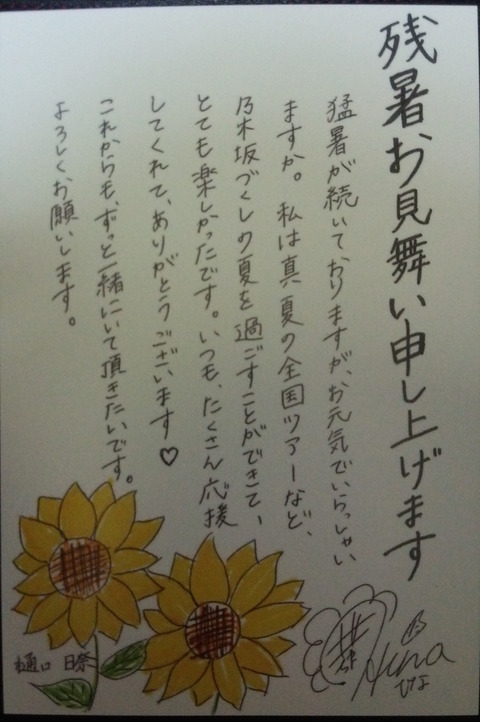 残暑お見舞い申し上げます
猛暑が続いておりますが、お元気でいらっしゃい
ますか。私は真夏の全国ツアーなど、
乃木坂づくしの夏を過ごすことができて、
とても楽しかったです。いつも、たくさん応援
してくれて、ありがとうございます♡
これからも、ずっと一緒にいて頂きたいです。
よろしくお願いします。
樋口 日奈
乃
Hina
ひな